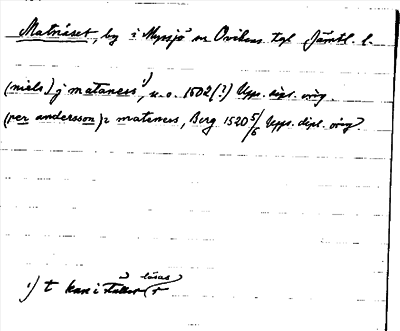 Matnäset, by i Myssjö sn Ovikens tgl Jämtl. l.
(niels) j mataness¹⁾, u.o. 1502(?) Upps. dipl. orig.
(per andersson) z mateness, Berg 1520 5/6 Upps. dipl. orig.
¹⁾ t kan i stället läsas r